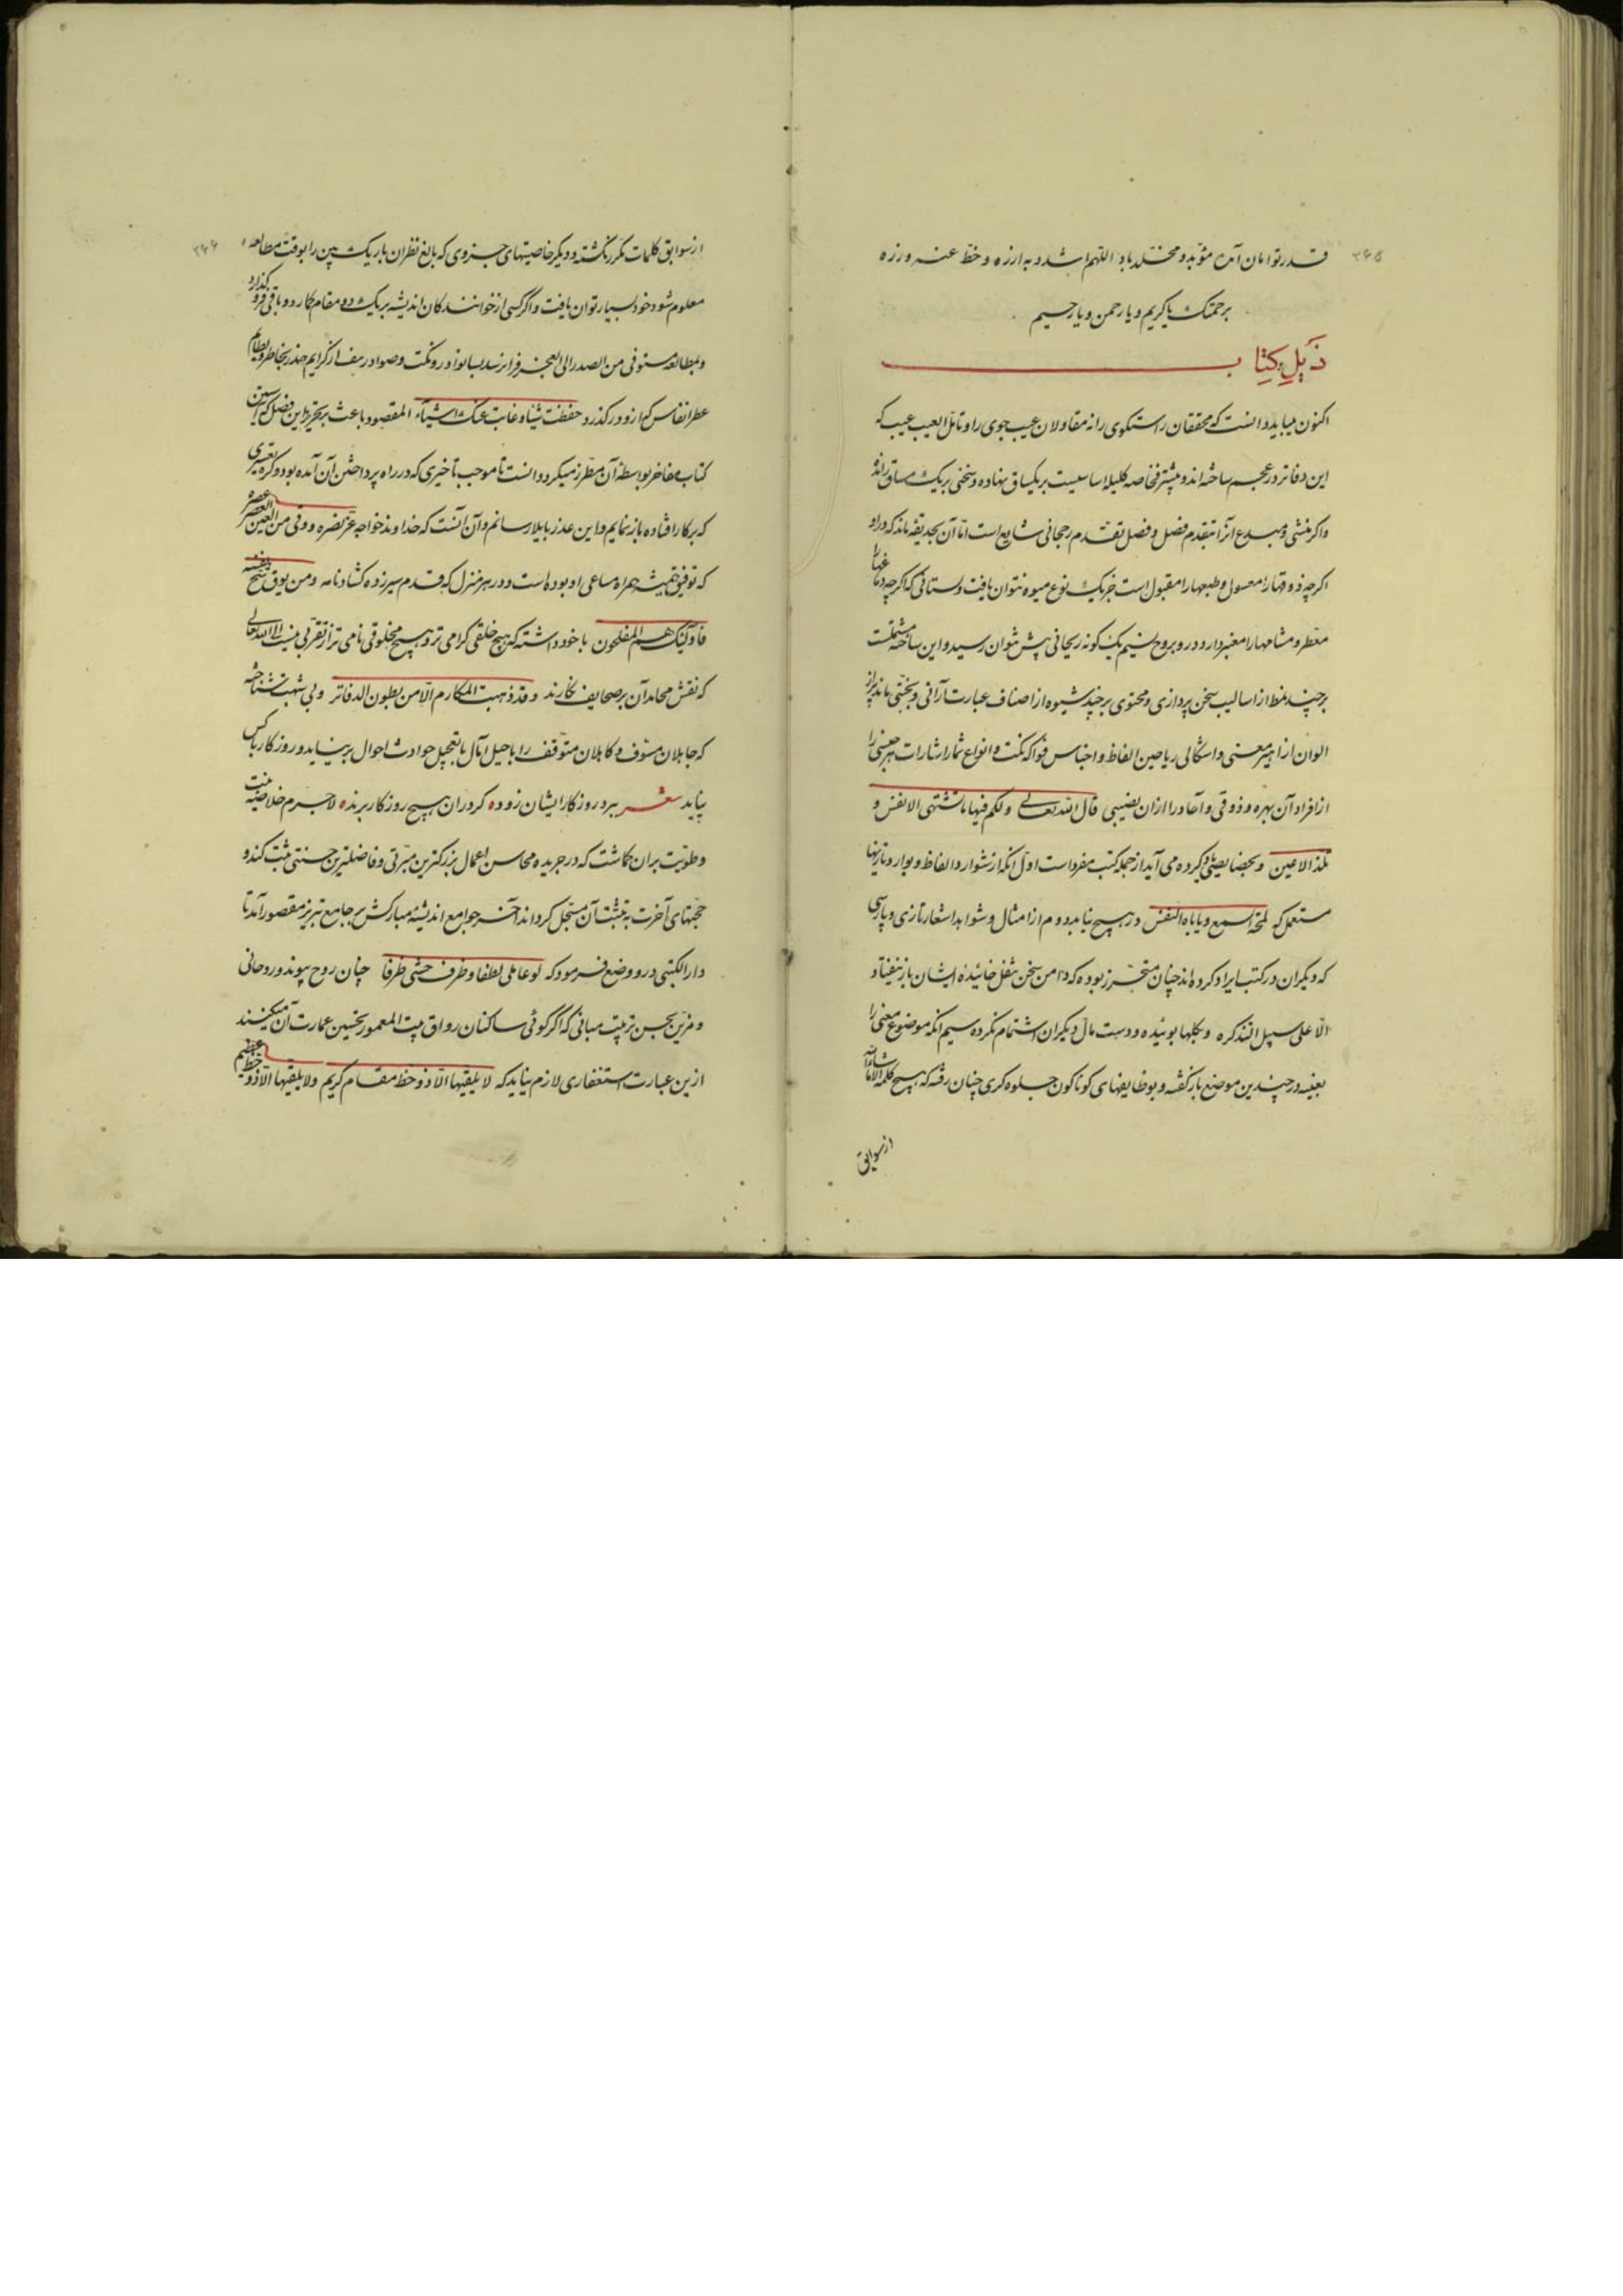 ۳۶۵
قدر توامان آمین مؤبد و مخلد باد اللهم اشدد به ازره و حط عنه وزره
برحمتک یا کریم و یا رحمن و یا رحیم
ذیل کتاب
اکنون میباید دانست که محققان راستکوی را نه مقاولان عیب جوی را و تامل العیب عیب که
این دفاتر در عجم ساخته‌اند و بیشتر خاصه کلیله اساسیست بر یکسیاق نهاده و سخنی بر یک مساق رانده
واکر منشی و مبدع آنرا بتقدم فضل و فضل تقدم رجحانی شایع است اما آن بحدیقه ماند که درو
اکرچه ذوقها را معسول و طبعها را مقبول است جز یک نوع میوه نتوان یافت و بستانی که اکرچه دماغها را
معطر و مشامها را معنبر دارد در و بروح نسیم یک کونه ریحانی بیش نتوان رسید و این ساخته مشتملست
بر چند نمط از اسالیب سخن پردازی و محتوی بر چند شیوه از اصناف عبارت آرائی و بجنتی ماند پر از
الوان ازاهیر معنی و اشکال ریاحین الفاظ و اجناس فواکه نکت و انواع ثمار اشارات هر حسی را
از افراد آن بهره و ذوقی و آحاد را ازان نصیبی قال الله تعالی ولکم فیها ما تشتهی الانفس و
تلذ الاعین و بخصایصی که یاد کرده می آید از جمله کتب مفرد است اول انکه از شوارد الفاظ و بوارد تازیها
مستعمل که لمجه السمع و یاباه النفس درو هیچ نیابد دوم از امثال و شواهد اشعار تازی و پارسی
که دیکران در کتب ایراد کرده‌اند چنان متحرز بوده که دامن سخن بثفل خائیده ایشان باز نیفتاد
الا علی سبیل الندره و بکلها بوئیده و دست مال دیکران استشمام نکرده سیم انکه موضوع معنی را
بعینه در چندین موضع باز کفته و بوظایفهای کوناکون جلوه کری چنان رفته که هیچ کلمه الا ماشاءالله
از سوابق
۳۶۶
از سوابق کلمات مکرر نکشته و دیکر خاصیتهای جزوی که بالغ نظران باریک بین را بوقت مطالعه
معلوم شود خود بسیار توان یافت و اکر کسی از خوانندکان اندیشه بر یک دو مقام کمارد و باقی فرو کذارد
و بمطالعه مستوفی من الصدر الی العجز فرا نرسد بسا نوادر و نکت و صوادر نتف از کرایم حذر بخاطر و لطایم
عطر انفاس که ازو درکذرد حفظت شیئا و غابت عنک اشیاء المقصود باعث بر تحریر این فصل که آستین
کتاب مفاخر بواسطه آن مطرز میکردد انست تا موجب تأخیری که در راه پرداختن آن آمده بود و کره تعسری
که بر کار افتاده باز نمایم و این عذر بابلا رسانم و آن آنست که خداوند خواجه عز نصره و وقی من العین عصره
که توفیق همیشه همراه مساعی او بوده است و در هر منزل که قدم سیر زده کشاد نامه ومن یوق شح نفسه
فاولئک هم المفلحون با خود داشته که هیچ خلقی کرامی تر و هیچ مخلوقی نامی تر از تقرب نیست الی الله تعالی
که نقش محامد آن بر صحایف نکارند وقد ذهبت المکارم الا من بطون الدفاتر و بی شبهت شناخته
که جاهلان مسوف و کاهلان متوقف را با حیل آمال بتعجیل حوادث احوال بر نیاید و روزکار با کس
نپاید شعر ببرد روزکار ایشان زود ٥ کر در ان هیچ روزکار برند ٥ لاجرم خلاصه نیت
و طویت بران کماشت که در جریده محاسن اعمال بزرکترین مبرتی و فاضلترین حسنتی ثبت کند و
حجتهای آخرت به تثبت آن مسجل کرداند آخر جوامع اندیشه مبارکش بر جامع تبریز مقصور آمد تا
دار الکتبی درو وضع فرمود که لو عاملی لطفا و ظرف حشی ظرفا چنان روح پیوند و روحانی
و مزین بحسن ترتیب مبانی که اکر کوئی ساکنان رواق بیت المعمور تحسین عمارت آن میکنند
ازین عبارت استغفاری لازم نیاید که لا یلقیها الا ذو حظ مقام کریم ولا یلقیها الا ذو حظ عظیم